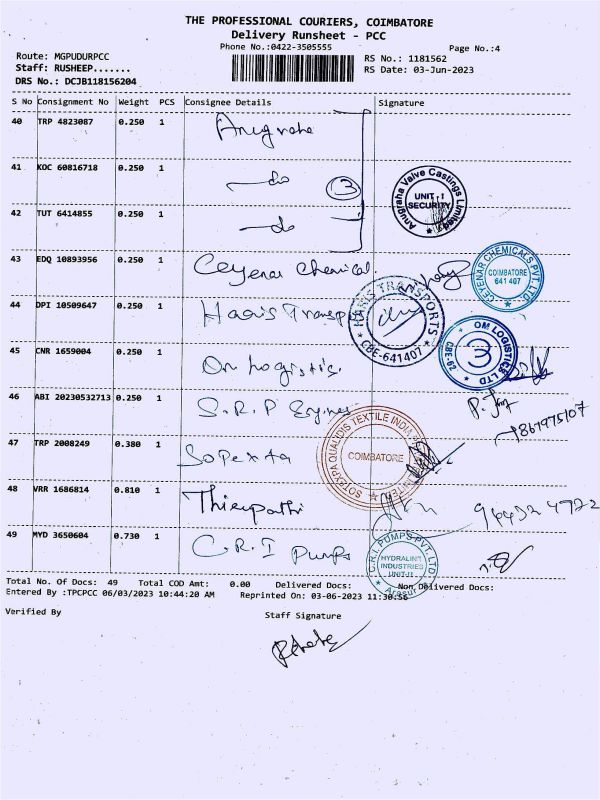 THE PROFESSIONAL COURIERS, COIMBATORE
Delivery Runsheet - PCC
Phone No.:0422-3505555
Page No.:4
Route: MGPUDURPCC
RS No.: 1181562
Staff: RUSHEEP.......
RS Date: 03-Jun-2023
DRS No.: DCJB118156204
S No Consignment No Weight PCS Consignee Details Signature
40 TRP 4823087 0.250 1 Anugraha
41 KOC 60816718 0.250 1 do 3
Anugraha Valve Castings Limited
UNIT-I
SECURITY
42 TUT 6414855 0.250 1 do
43 EDQ 10893956 0.250 1 Ceyenar Chemical
CEYENAR CHEMICALS PVT. LTD
COIMBATORE
641 407
44 DPI 10509647 0.250 1 Haris Transport
HARIS TRANSPORTS
CBE-641407
45 CNR 1659004 0.250 1 Om Logistic
OM LOGISTICS LTD
CBE-29
3
46 ABI 20230532713 0.250 1 S.R.P Engines
47 TRP 2008249 0.380 1 Sopexta
COIMBATORE
48 VRR 1686814 0.810 1 Thirupathi
49 MYD 3650604 0.730 1 C.R.I Pumps
C.R.I. PUMPS PVT. LTD
HYDRALINT
INDUSTRIES
UNIT-II
Arasur
Total No. Of Docs: 49 Total COD Amt: 0.00 Delivered Docs: Non Delivered Docs:
Entered By :TPCPCC 06/03/2023 10:44:20 AM Reprinted On: 03-06-2023 11:30:56
Verified By Staff Signature